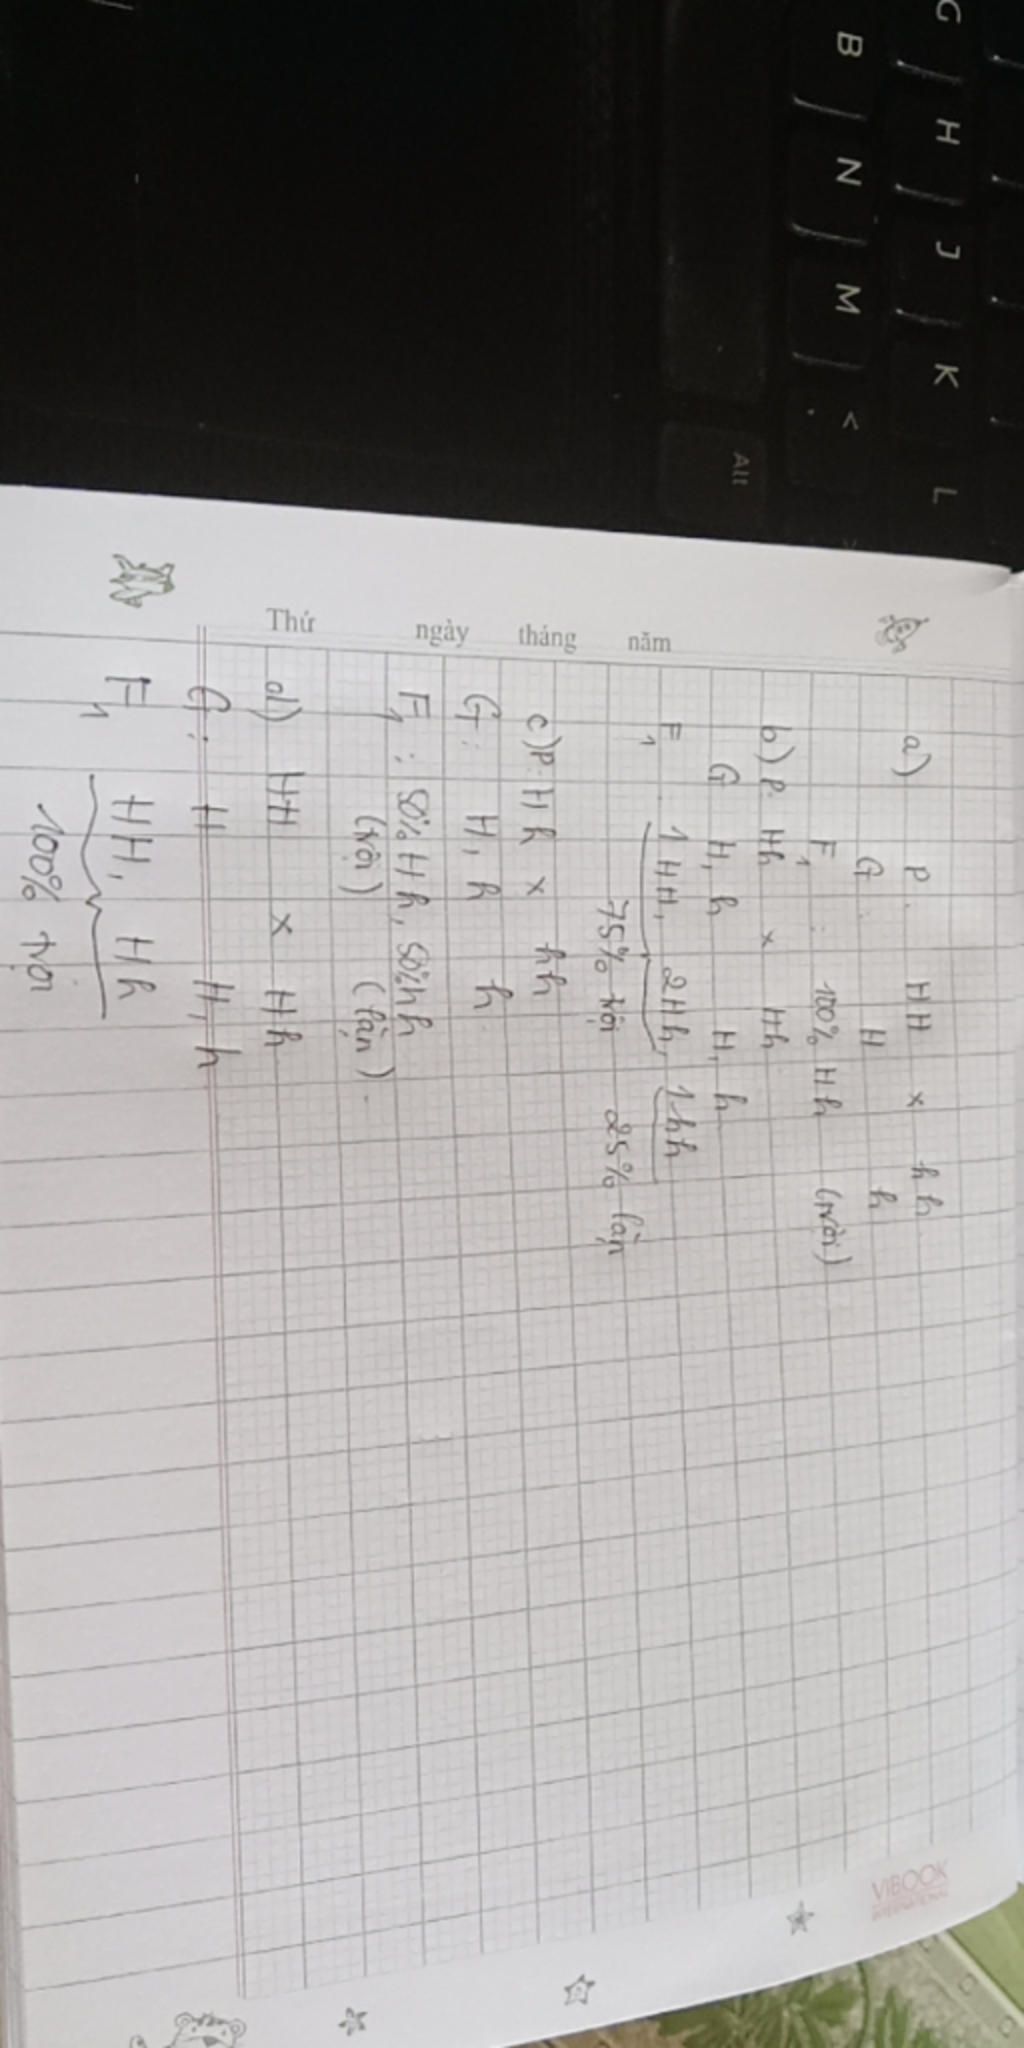 G H J K L
B N M <
Alt
VIBOOK
INTERNATIONAL
Thứ ngày tháng năm
a) P. HH x hh
G. H h
F1 : 100% Hh (trội)
b) P. Hh x Hh
G H, h H, h
F1 1HH, 2Hh, 1hh
75% trội 25% lặn
c) P: Hh x hh
G: H, h h
F1 : 50% Hh, 50% hh
(trội) (lặn).
d) HH x Hh
G: H H, h
F1 HH, Hh
100% trội